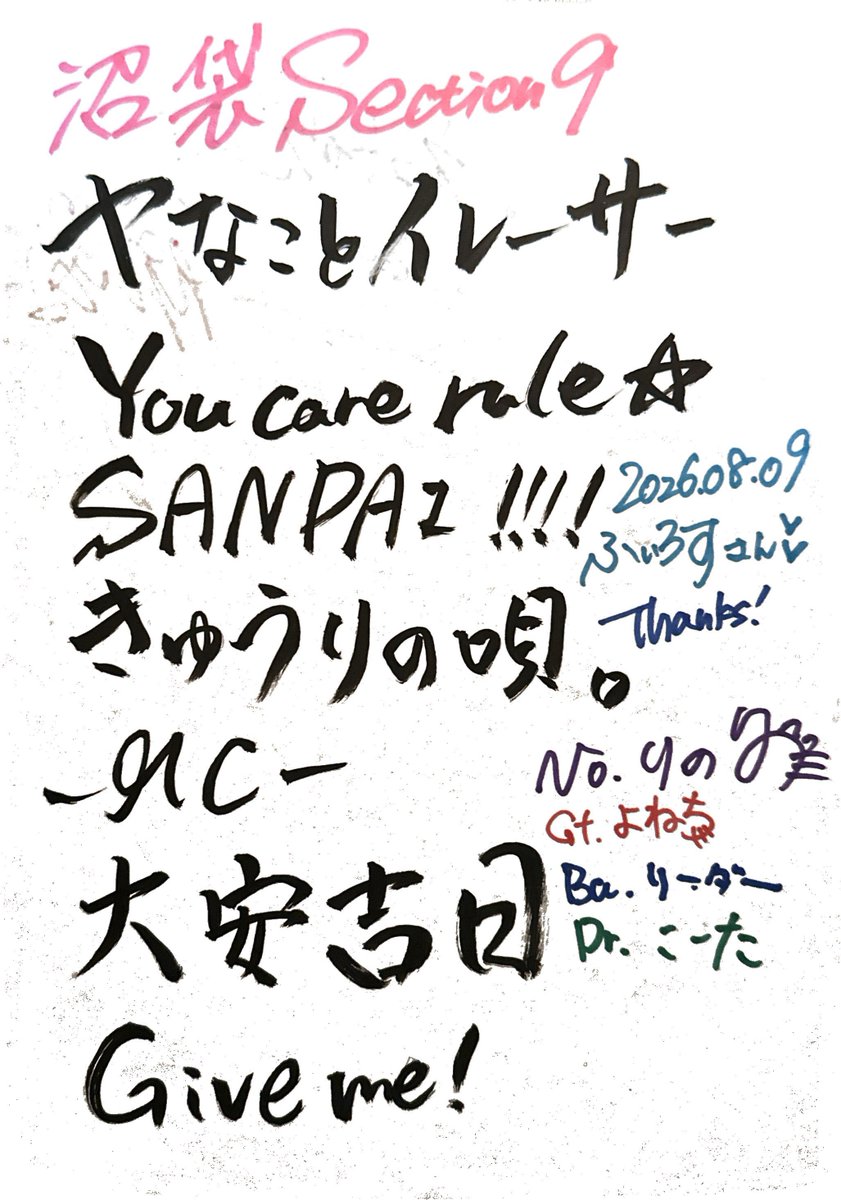 沼袋 Section9
ヤなことイレーサー
You care rule☆
SANPAI !!!!
2026.08.09
ふぃろすさん
Thanks!
きゅうりの唄。
-MC-
Vo. りの
Gt. よねちゃ
Ba. リーダー
Dr. こーた
大安吉日
Give me!